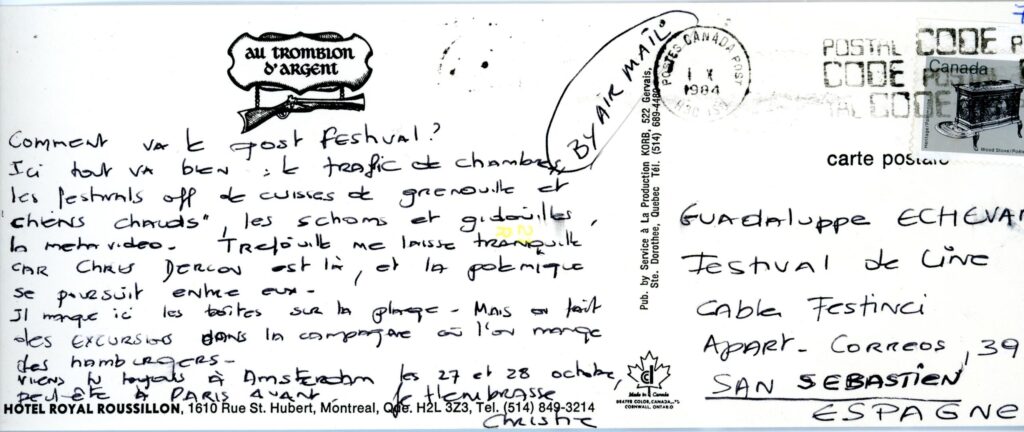 au tromblon
d'argent
Comment va le post festival?
Ici tout va bien : le trafic de chambres,
les festivals off de cuisses de grenouille et
"chiens chauds", les schoms et gidouilles,
la meta video. Trefouille me laisse tranquille
car Chris Dercon est là, et la polémique
se poursuit entre eux.
Il manque ici les boîtes sur la plage. Mais on fait
des excursions dans la campagne où l'on mange
des hamburgers.
Viens tu toujours à Amsterdam les 27 et 28 octobre,
peut-être à Paris avant Je t'embrasse
Christie
HÔTEL ROYAL ROUSSILLON, 1610 Rue St. Hubert, Montreal, Que. H2L 3Z3, Tel. (514) 849-3214
BY AIR MAIL
Pub. by Service à La Production KORB, 522 Gervais,
Ste. Dorothee, Quebec Tél. (514) 689-4480
Made in Canada
CORNWALL, ONTARIO
POSTES CANADA POST
1984
POSTAL CODE
CODE POSTAL
CODE
Canada
carte postale
GUADALUPPE ECHEVA
Festival de Cine
Cable Festinci
Apart. Correos, 39
SAN SEBASTIEN
ESPAGNE